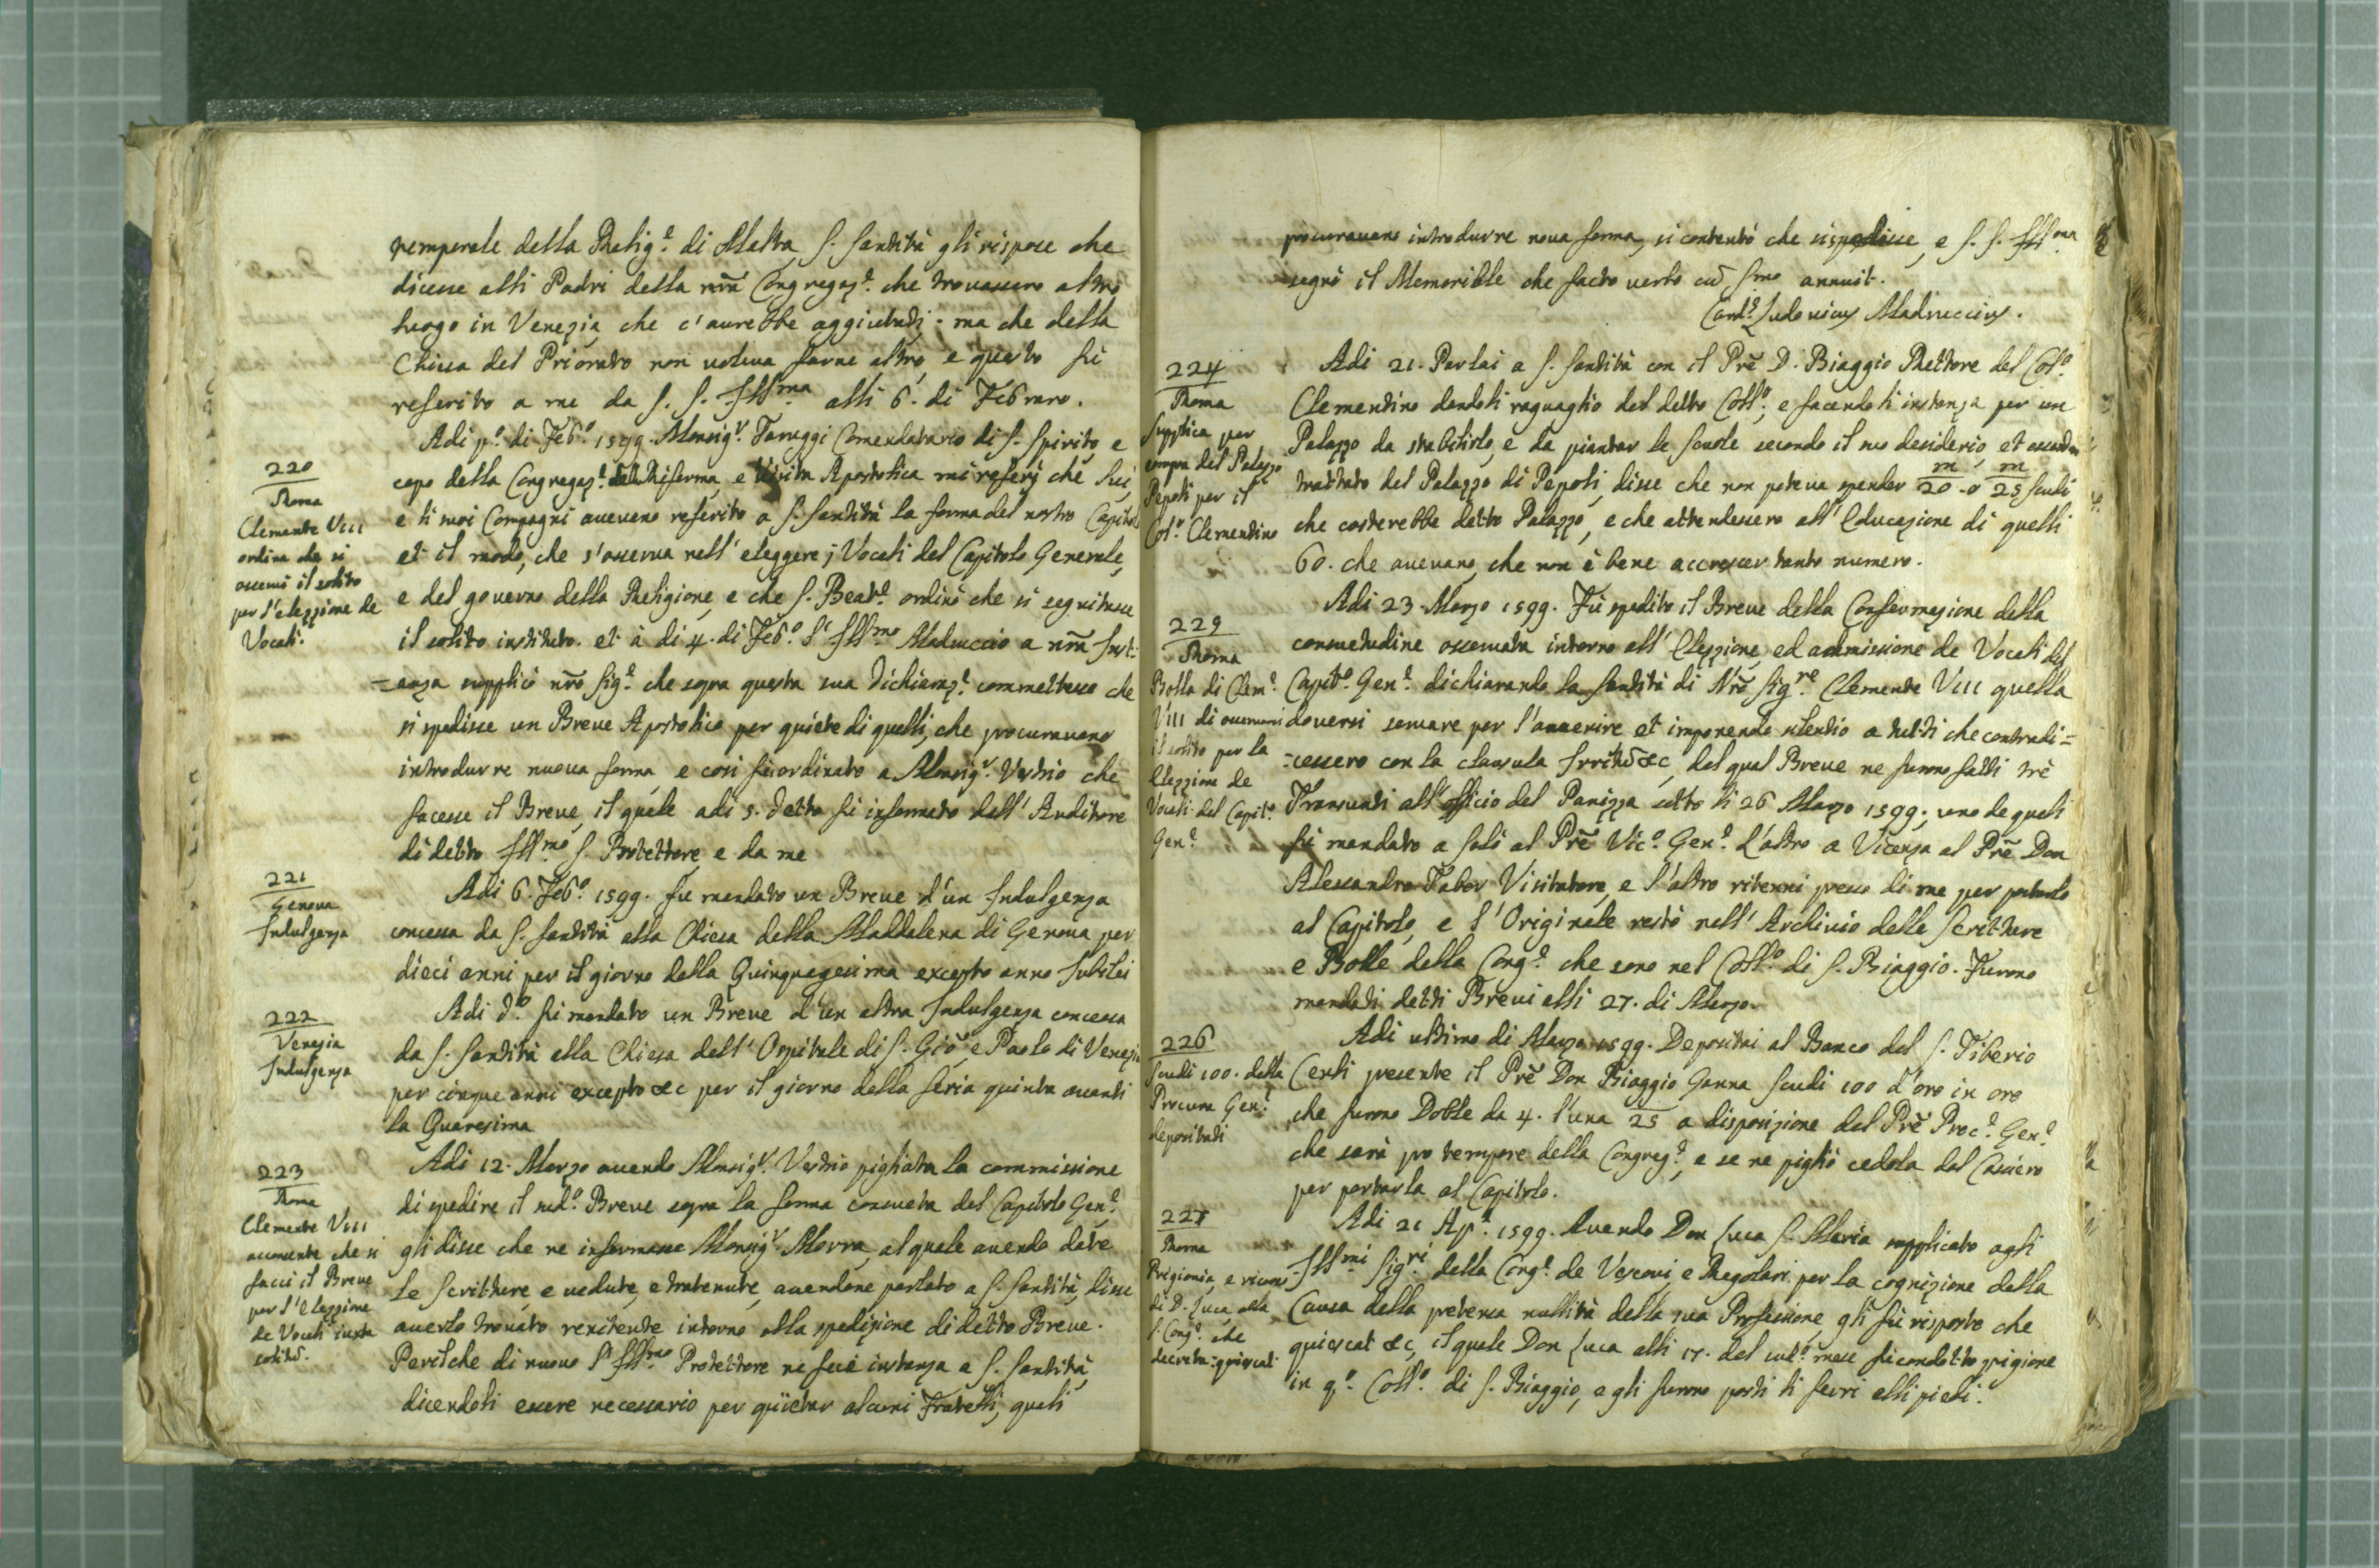 temporale della Relig.e di Malta, S. Santità gli rispose che
dicesse alli Padri della nr̃a Congregaz.e che trovassero altro
luogo in Venezia che c'aurebbe aggiutati. ma che della
Chiesa del Priorato non voleva farne altro, e questo fù
referito a me da S. S. Ill.ma alli 6. di Febraro.
220
Roma
Clemente VIII
ordina che si
osservi il solito
per l'elezzione de
Vocali.
Adi p.o di Feb.o 1599. Monsig.r Taruggi Comendatario di S. Spirito, e
capo della Congregaz.e della Riforma, e Visita Apostolica mi referì che lui,
e li suoi Compagni avevano referito a S. Santità la forma del nostro Capitolo
et il modo, che s'osserva nell'eleggere j Vocali del Capitolo Generale,
e del governo della Religione, e che S. Beat.e ordinò che si seguitasse
il solito instituto. et à di 4. di Feb.o l'Ill.mo Madruccio a nr̃a Inst:
=anza supplicò nr̃o Sig.e che sopra questa sua dichiaraz.e commettesse che
si spedisse un Breve Apostolico per quiete di quelli, che procuravano
introdurre nuova forma, e così fù ordinato a Monsig.r Vestrio che
facesse il Breve, il quale adi 5. detto fù informato dall'Auditore
di detto Ill.mo S. Protettore e da me
221
Genova
Indulgenza
Adi 6. Feb.o 1599. fu mandato un Breve d'un Indulgenza
concessa da S. Santità alla Chiesa della Maddalena di Genova per
dieci anni per il giorno della Quinquagesima excepto anno Jubilei
222
Venezia
Indulgenza
Adi d.o fù mandato un Breve d'un altra Indulgenza concessa
da S. Santità alla Chiesa dell'Ospitale di S. Gio: e Paolo di Venezia
per cinque anni excepto &c per il giorno della feria quinta avanti
la Quaresima
223
Roma
Clemente VIII
acconsente che si
facci il Breve
per l'elezzione
de Vocali iuxta
solitũ.
Adi 12. Marzo avendo Monsig.r Vestrio pigliata la commissione
di spedire il sud.o Breve sopra la forma consueta del Capitolo Gen.e
gli disse che ne informasse Monsig.r Morra, al quale avendo date
le Scritture, e vedute, e tratenute, avendone parlato a S. Santità, disse
averlo trovato renitente intorno alla spedizione di detto Breve.
Perilche di nuovo l'Ill.mo Protettore ne fece instanza a S. Santità,
dicendoli essere necessario per quietar alcuni Fratelli, quali
procuravano introdurre nova forma, si contentò che si spedisse, e S. S. Ill.ma
segnò il Memoriale che facto verbo cũ S.mo annuit.
Card.s Ludovicus Madruccius.
224
Roma
Supplica per
compra del Palazzo
Pepoli per il
Col.o Clementino
Adi 21. Parlai a S. Santità con il Prẽ D. Biaggio Rettore del Col.o
Clementino dandoli raguaglio del detto Coll.o, e facendoli instanza per un
Palazzo da stabilirlo, e da piantar le scuole secondo il suo desiderio, et essendosi
trattato del Palazzo di Pepoli, disse che non poteva spender 20 m o 25 m scudi
che costerebbe detto Palazzo, e che attendessero all'Educazione di quelli
60. che avevano, che non è bene accrescer tanto numero.
225
Roma
Bolla di Clem.e
VIII di osservarsi
il solito per la
Elezzione de
Vocali del Capit.o
Gen.e
Adi 23. Marzo 1599. Fù spedito il Breve della Confermazione della
consuetudine osservata intorno all'Elezzione, ed ammissione de Vocali del
Capit.o Gen.e dichiarando la Santità di Nr̃o Sig.re Clemente VIII quella
doversi servare per l'avvenire et imponendo silentio a tutti che contradi=
=cessero con la clausula Irritũ &c, del qual Breve ne furono fatti trè
Transunti all'officio del Panizza sotto li 26 Marzo 1599, uno de quali
fù mandato a Salò al Prẽ Vic.o Gen.e L'altro a Vicenza al Prẽ Don
Alessandro Tabor Visitatore, e l'altro ritenni presso di me per portarlo
al Capitolo, e l'Originale restò nell'Archivio delle Scritture
e Bolle della Cong.e che sono nel Coll.o di S. Biaggio. Furono
mandati detti Brevi alli 27. di Marzo.
226
Scudi 100. della
Procura Gen.e
depositati
Adi ultimo di Marzo 1599. Depositai al Banco del S. Tiberio
Ceuli presente il Prẽ Don Biaggio Ganna scudi 100 d'oro in oro
che furono Doble da 4. l'una 25 a disposizione del Prẽ Proc.e Gen.e
che sarà pro tempore della Congreg.e, e se ne pigliò cedola dal Cassiero
per portarla al Capitolo.
227
Roma
Prigionia, e ricorso
di D. Luca alla
S. Cong.e che
decreta: quiescat
Adi 21 Ap.e 1599. Avendo Don Luca S. Maria supplicato agli
Ill.mi Sig.ri della Cong.e de Vescovi, e Regolari per la cognizione della
Causa della pretensa nullità della sua Professione, gli fù risposto che
quiescat &c, il quale Don Luca alli 17. del sud.o mese fù condotto prigione
in q.o Coll.o di S. Biaggio, e gli furono posti li ferri alli piedi.